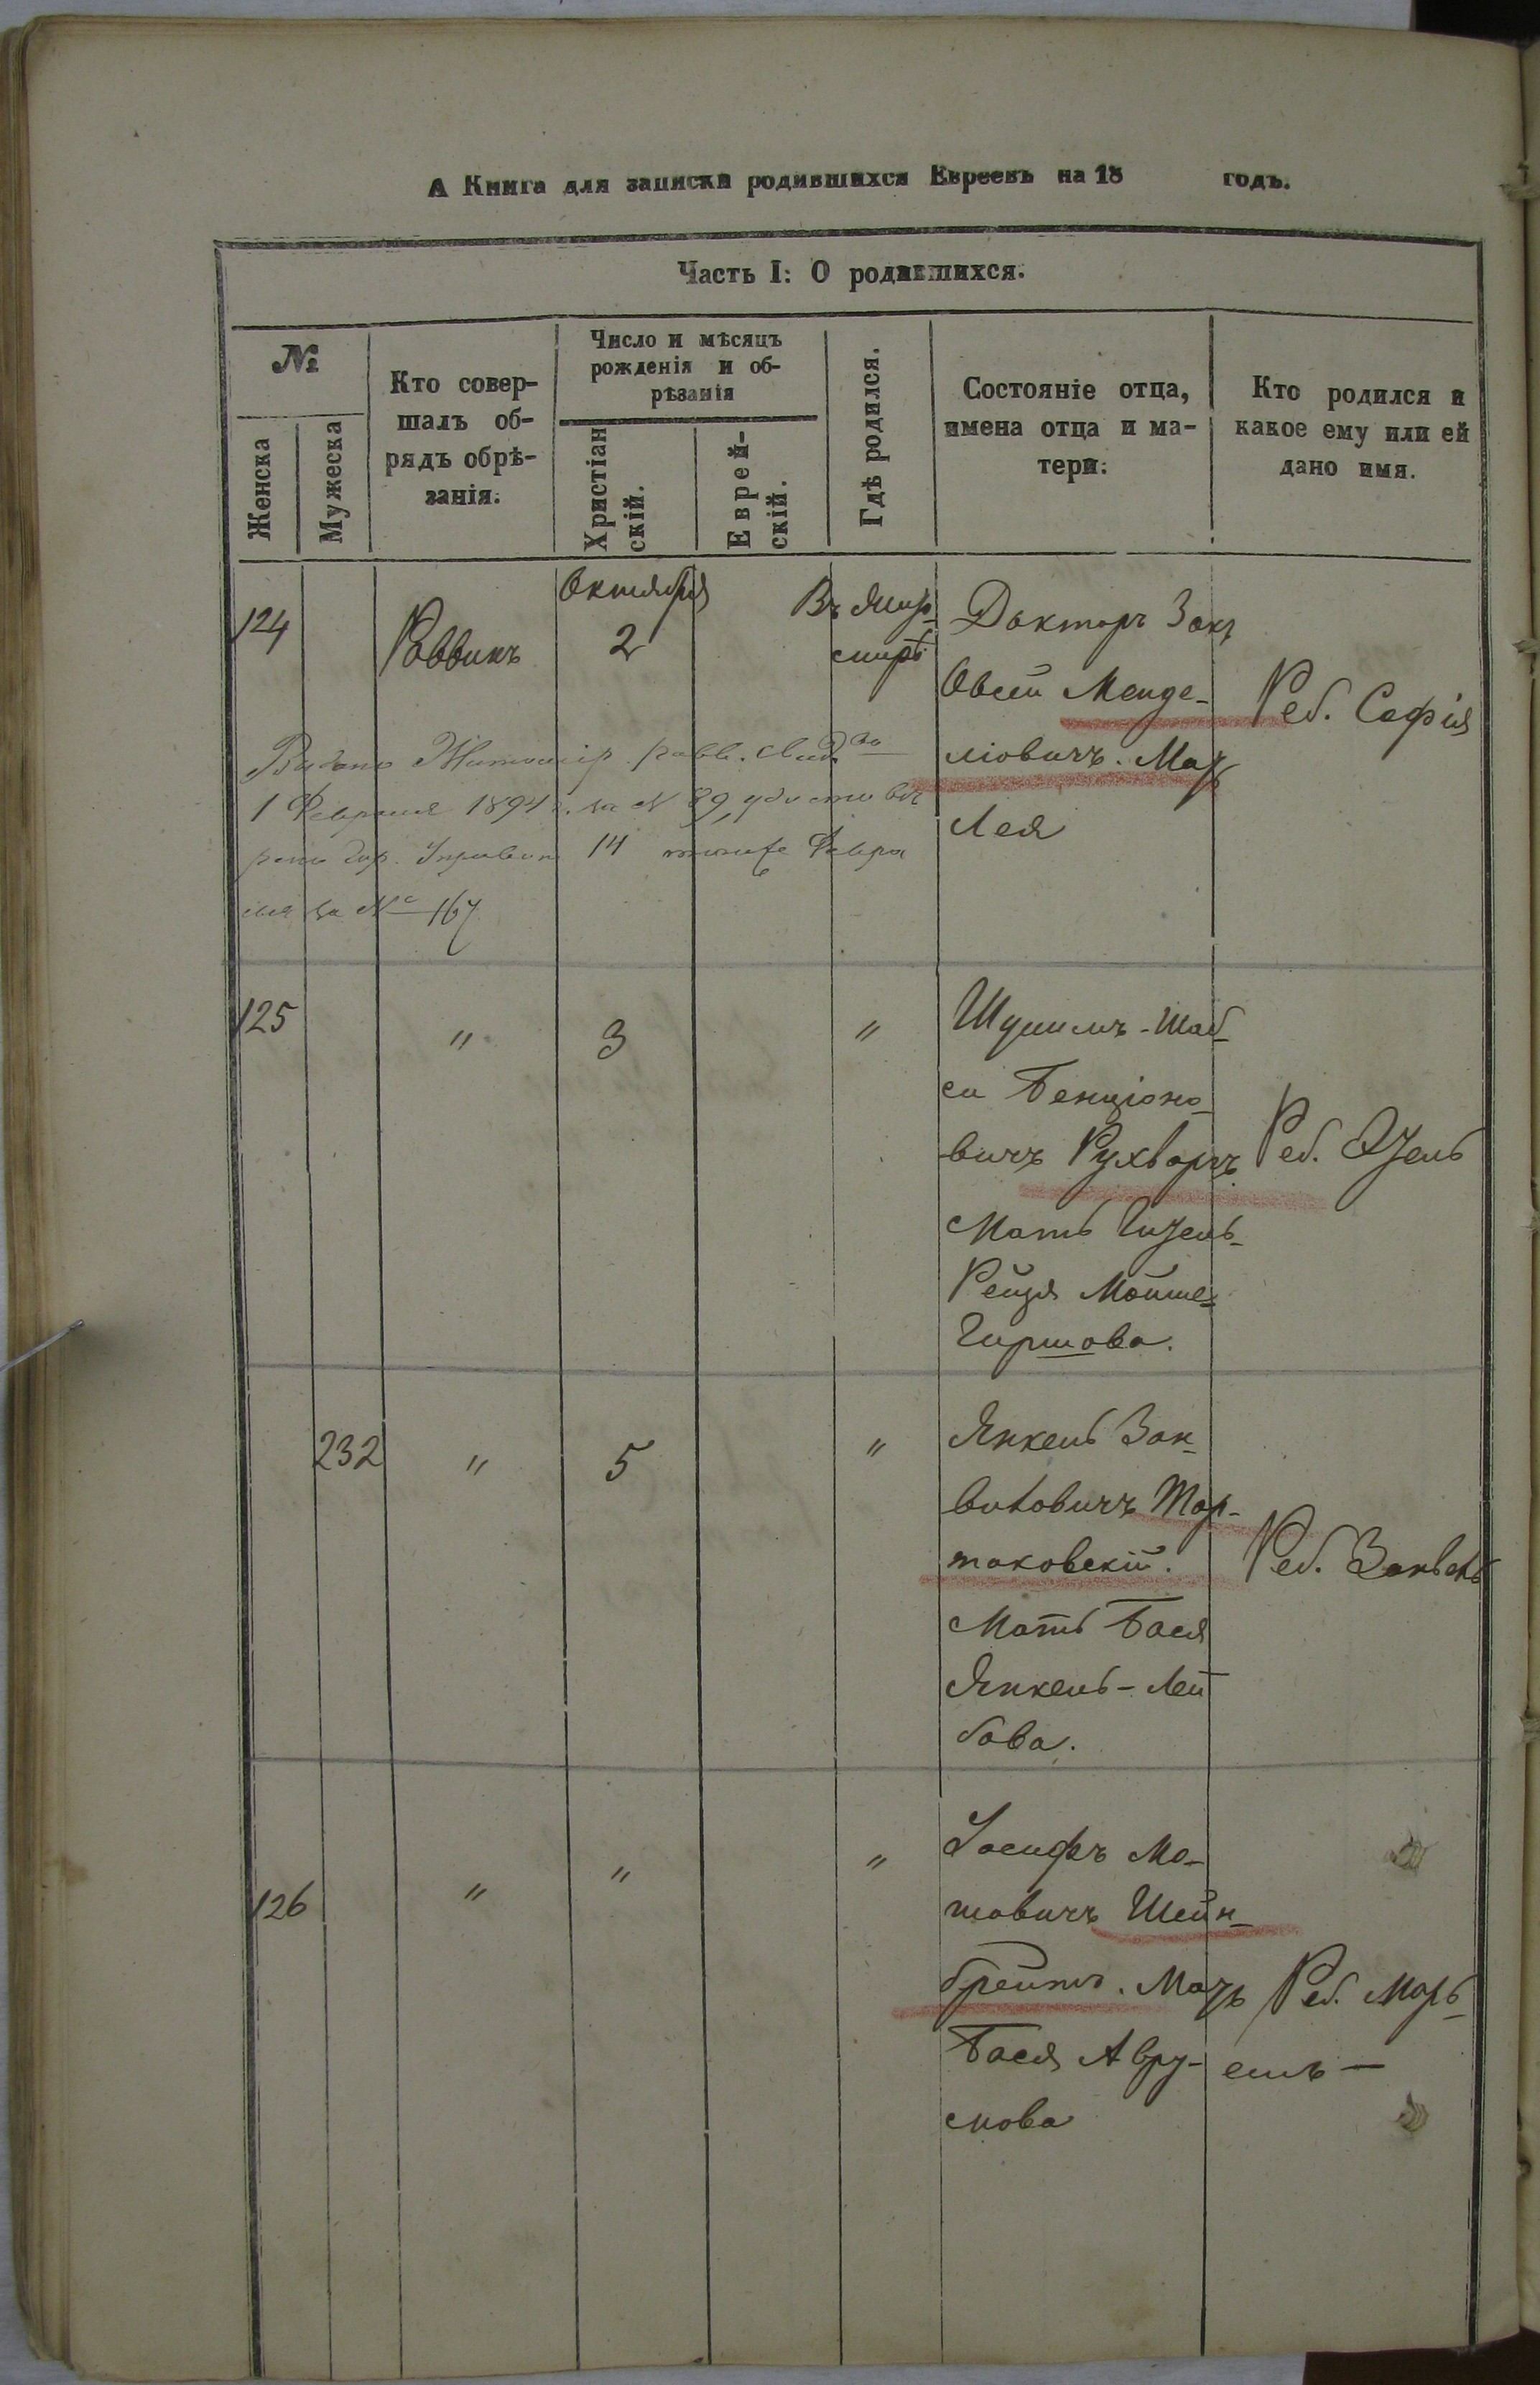 А Книга для записки родившихся Евреевъ на 18 годъ.
Часть I: О родившихся.
№
Женска
Мужеска
Кто совер-
шалъ об-
рядъ обрѣ-
занія.
Число и мѣсяцъ
рожденія и об-
рѣзанія
Христіан
скій.
Еврей-
скій.
Гдѣ родился.
Состояніе отца,
имена отца и ма-
тери:
Кто родился и
какое ему или ей
дано имя.
124
Раввинъ
Октября
2
Въ Жито-
мирѣ
Докторъ
Овсій Менде-
ліовичъ. Мать
Лея
Реб. Софія
Выдано Житомір. равв. свид во
1 Февраля 1894 г. за № 89,
14 Февра
ля за № 167
125
"
3
"
Шулимъ-Шаб-
си Бенціоно-
вичъ Рухваргъ
Мать Гизель-
Рейзя Мойше-
Гиршова.
Реб. Эзель
232
"
5
"
Янкель Зан-
виловичъ Тар-
таковскій.
Мать Бася
Янкель-Лей
бова.
Реб. Занвель
126
"
"
"
Іосифъ Мо-
шовичъ Шейн-
брейтъ. Мать
Бася Авру-
мова
Реб. Марь-
емъ —